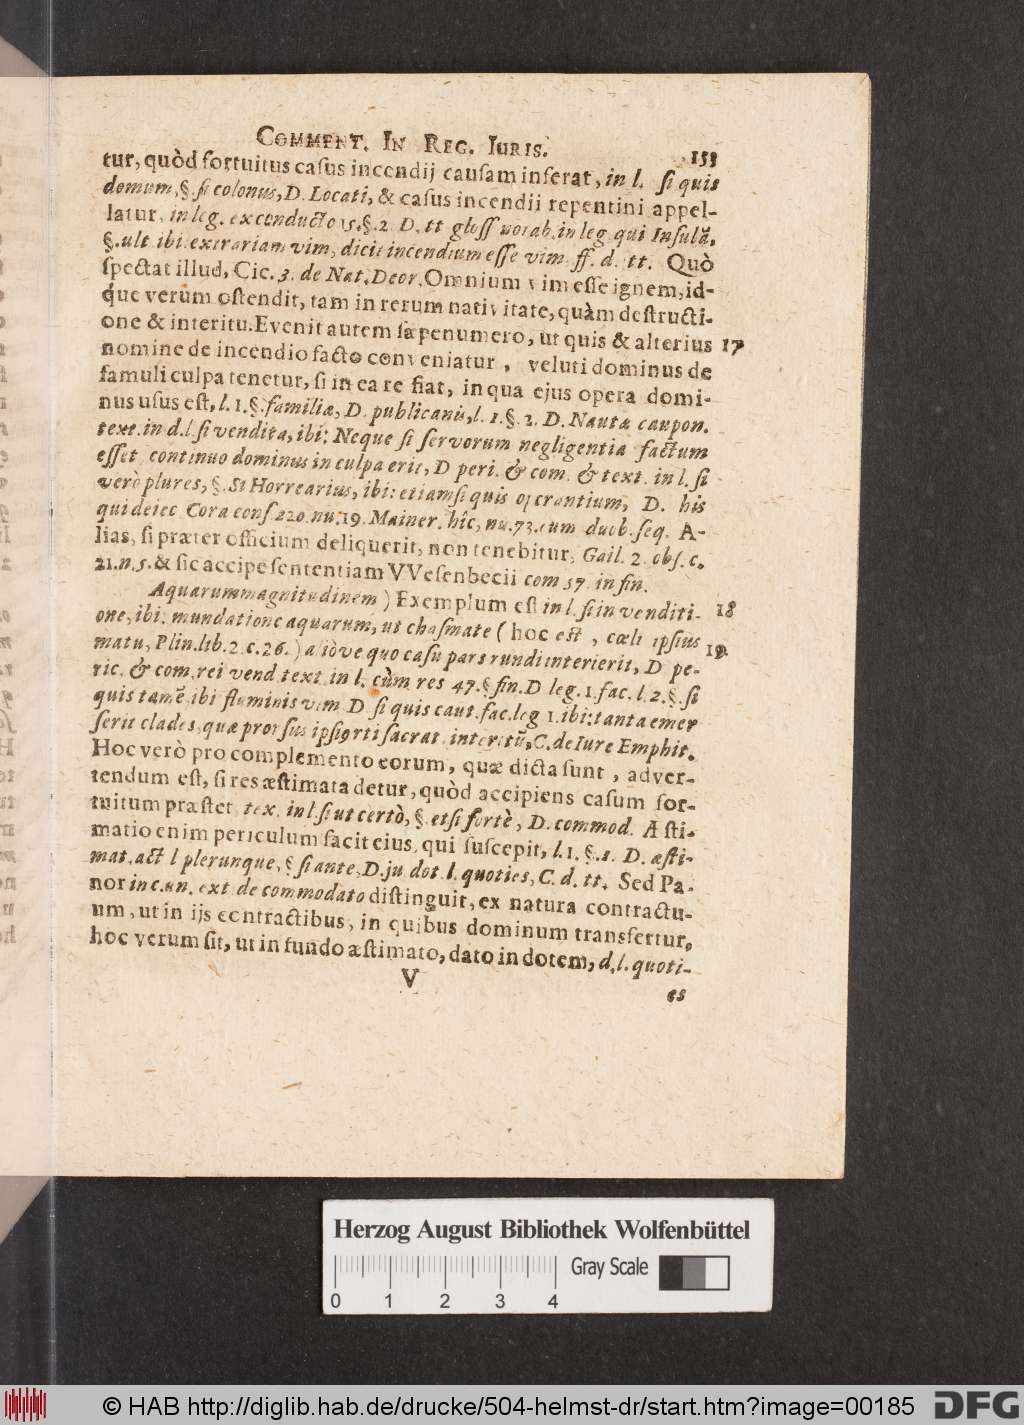 COMMENT. IN REG. IURIS. 153
tur, quòd fortuitus casus incendij causam inferat, in l. si quis
domum, §. si colonus, D. Locati, & casus incendii repentini appel-
latur, in leg. ex conducto 15. §. 2. D. tt gloss notab. in leg qui Insulā,
§. ult ibi: extrariam vim, dicit incendium esse vim ff. d. tt. Quò
spectat illud, Cic. 3. de Nat. Deor. Omnium vim esse ignem, id-
que verum ostendit, tam in rerum nativitate, quàm destructi-
one & interitu. Evenit autem sæpenumero, ut quis & alterius 17
nomine de incendio facto conveniatur, veluti dominus de
famuli culpa tenetur, si in ea re fiat, in qua ejus opera domi-
nus usus est, l. 1. §. familiæ, D. publicanis, l. 1. §. 2. D. Nautæ caupon.
text. in d. l. si vendita, ibi: Neque si servorum negligentia factum
esset continuo dominus in culpa erit, D peri. & com. & text. in l. si
verò plures, §. Si Horrearius, ibi: etiamsi quis operantium, D. his
qui deiec Cora cons. 220. nu. 19. Mainer. hîc, nu. 73. cum duob. seq. A-
lias, si præter officium deliquerit, non tenebitur, Gail. 2. obs. c.
21. n. 5. & sic accipe sententiam VVesenbecii com 57. in fin.
Aquarum magnitudinem) Exemplum est in l. si in venditi- 18
one, ibi: mundatione aquarum, ut chasmate (hoc est, cœli ipsius 19
matu, Plin. lib. 2. c. 26.) aliòve quo casu pars fundi interierit, D pe-
ric. & com. rei vend text in l. cùm res 47. § fin. D leg. 1. fac. l. 2. §. si
quis tamē ibi fluminis vim D si quis caut. fac. leg 1. ibi: tanta emer
serit clades, quæ prorsus ipsi orti sacrat interitū, C. de Iure Emphit.
Hoc verò pro complemento eorum, quæ dicta sunt, adver-
tendum est, si res æstimata detur, quòd accipiens casum for-
tuitum præstet, tex. in l. si ut certò, §. etsi fortè, D. commod. Æsti-
matio enim periculum facit eius, qui suscepit, l. 1. §. 1. D. æsti-
mat. act l plerunque, § si ante, D. ju dot. l. quoties, C. d. tt. Sed Pa-
nor in c. un. ext de commodato distinguit, ex natura contractu-
um, ut in ijs contractibus, in quibus dominum transfertur,
hoc verum sit, ut in fundo æstimato, dato in dotem, d. l. quoti-
V
es
Herzog August Bibliothek Wolfenbüttel
Gray Scale
0 1 2 3 4
© HAB http://diglib.hab.de/drucke/504-helmst-dr/start.htm?image=00185
DFG